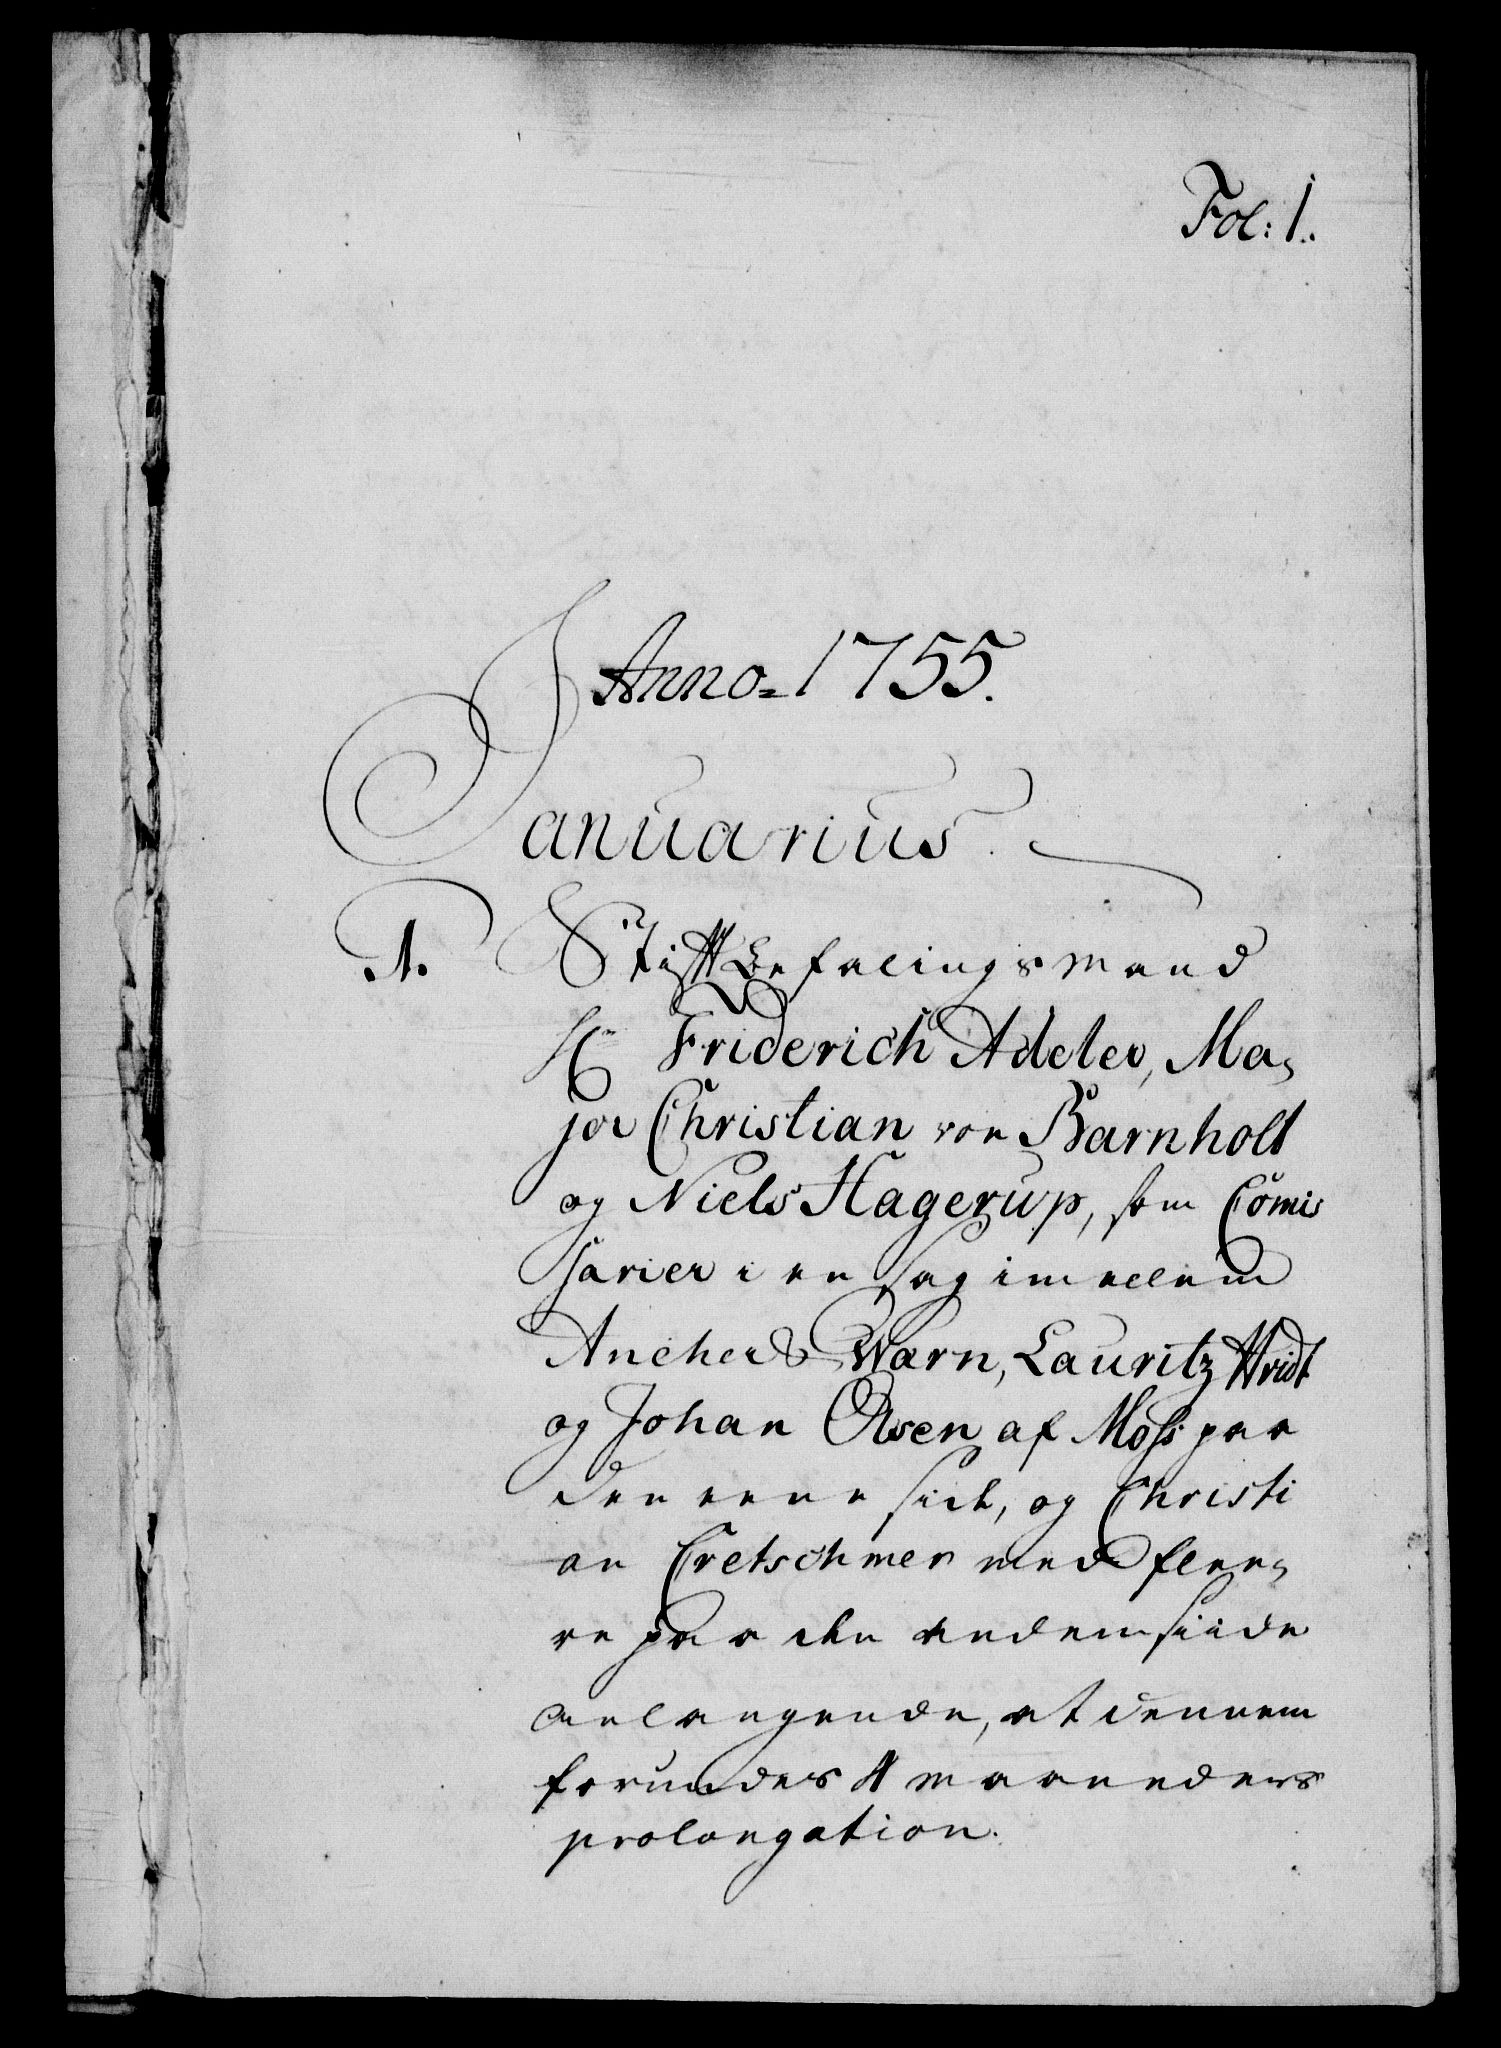 Fol: 1.
Anno 1755.
Januarius
1. Stifftbefalingsmand
Hr Friderich Adeler, Ma-
jor Christian von Barnholt
og Niels Hagerup, som Comis
sarier i en sag imellem
Ancher & Wærn, Lauritz Hvidt
og Johan Olsen af Moss paa
den eene side, og Christi
an Cretschmer med flee-
re paa den anden siide
anlangende, at dennem
forundes 4 maaneders
prolongation.